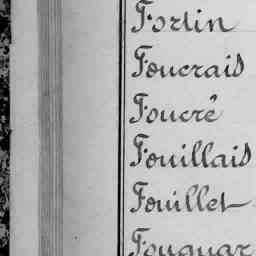 Fortin
Foucrais
Foucré
Fouillais
Fouillet
Fouquar